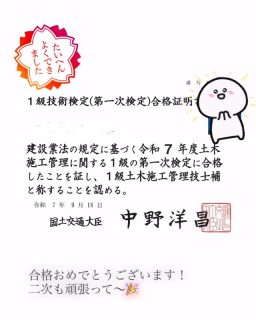 たいへん
よくでき
ました
1級技術検定(第一次検定)合格証明
建設業法の規定に基づく令和7年度土木
施工管理に関する1級の第一次検定に合格
したことを証し、1級土木施工管理技士補
と称することを認める。
令和 7年 9月18日
国土交通大臣 中野洋昌
合格おめでとうございます！
二次も頑張って〜🎉